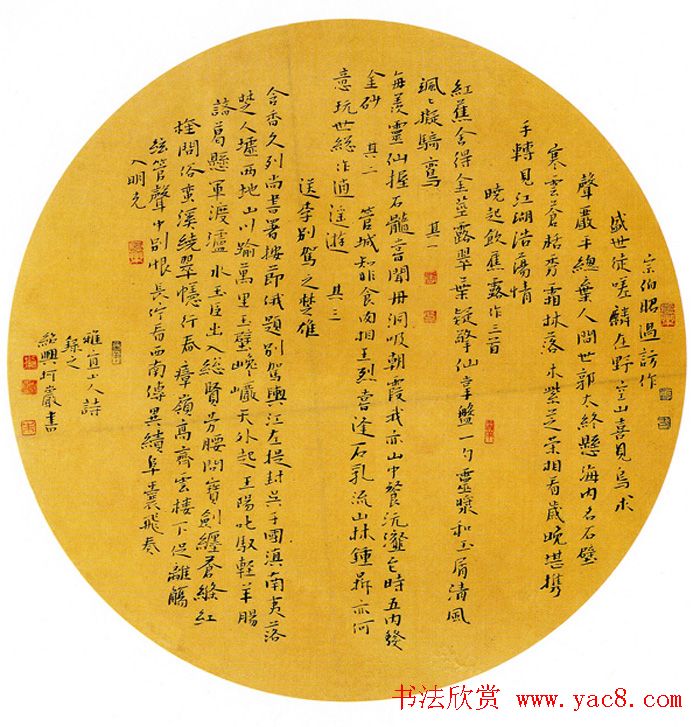 宗伯昭過訪作
盛世徒嗟麟在野空山喜見鳥求
聲嚴平總棄人間世郭太終懸海内名石壁
寒雲蒼桔秀霜林落木紫芝榮相看歲晚堪携
手轉見江湖浩蕩情
曉起飲蕉露作三首
紅蕉舍得金莖露翠葉疑擎仙掌盤一勺靈漿和玉屑清風
颯〻擬騎鸞 其一
每羨靈仙握石髓嘗聞丹洞吸朝霞我亦山中餐沆瀣乞時五内發
金砂 其二 管城知非食肉相王烈喜逢石乳流山林鍾鼎亦何
意玩世総作逍遙遊 其三
送李別駕之楚雄
含香久列尚書署按節俄題別駕輿江左提封吴子國滇南夷落
楚人墟西地山川踰萬里玉壁巉巗天外起王陽叱馭輕羊腸
諸葛懸軍渡瀘水玉臣出入総賢勞腰間寶劍纏蒼緱紅
橦問俗蛮溪繞翠幰行春瘴嶺高齊雲樓下促離觴
絃管聲中別恨長佇看西南傳異績阜囊飛奏
入明光
雅宜山人詩
録之
紹興柯巖書
书法欣赏 www.yac8.com